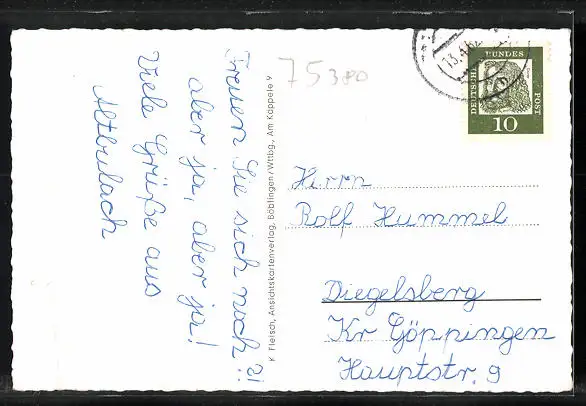 Freuen Sie sich noch?!
aber ja, aber ja!
Viele Grüße aus
Altbulach
75380
K Fleisch, Ansichtskartenverlag, Böblingen/Wttbg., Am Käppele 9
DEUTSCHE BUNDES POST
10
Herrn
Rolf Hummel
Diegelsberg
Kr Göppingen
Hauptstr. 9